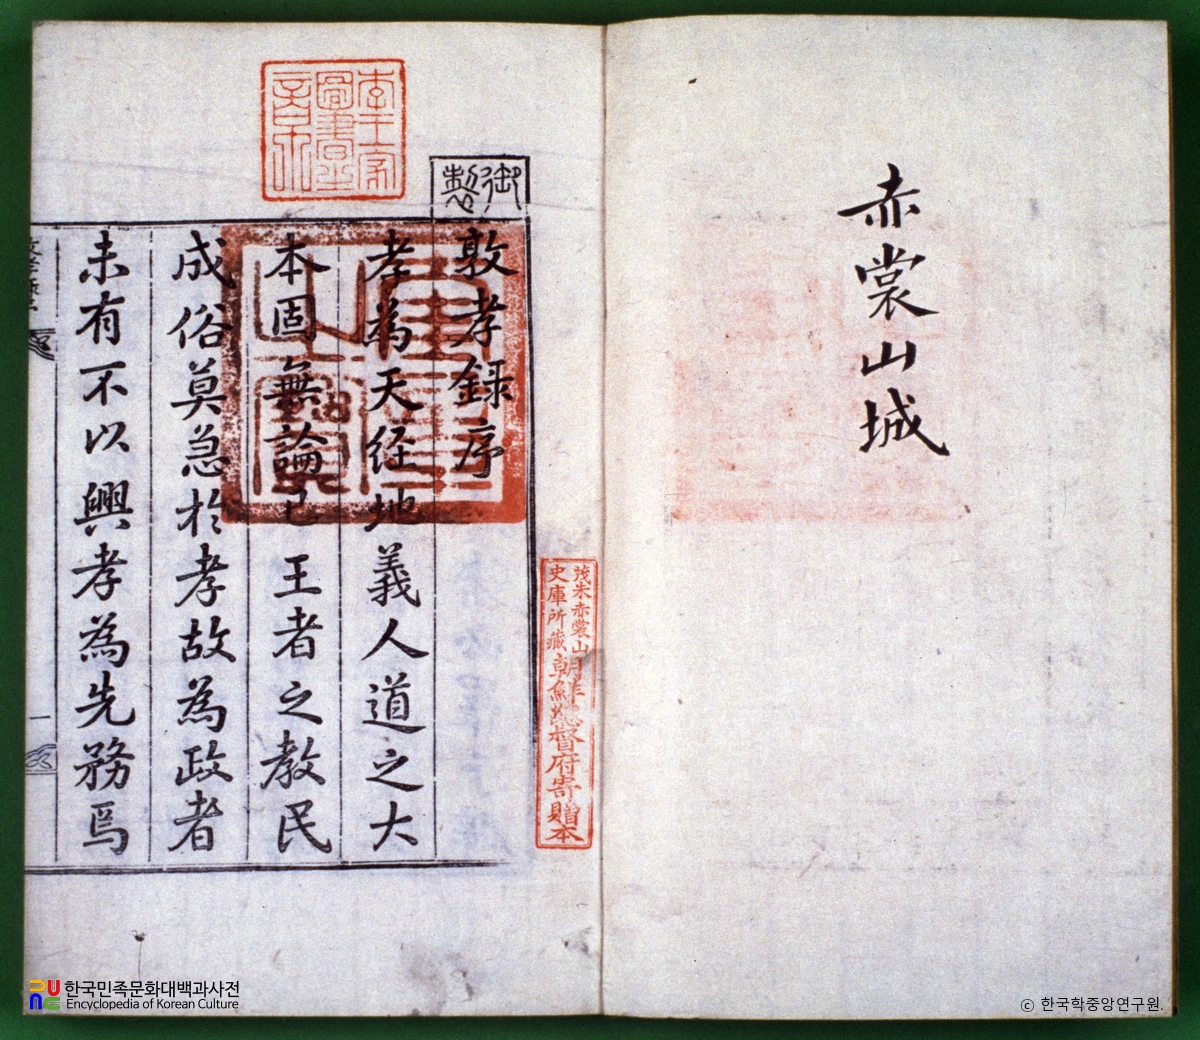 赤裳山城
李王家
圖書之
章
御製
敦孝録序
孝為天経地義人道之大
本固無論已王者之教民
成俗莫急於孝故為政者
未有不以興孝為先務焉
一
茂朱赤裳山
史庫所藏朝鮮総督府寄贈本
한국민족문화대백과사전
Encyclopedia of Korean Culture
ⓒ 한국학중앙연구원.